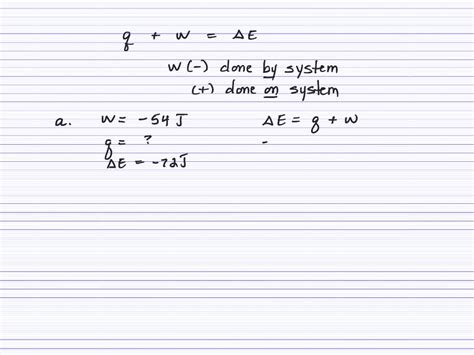 q + w = ΔE
w (-) done by system
(+) done on system
a. w = -54 J ΔE = q + w
q = ? -
ΔE = -72J